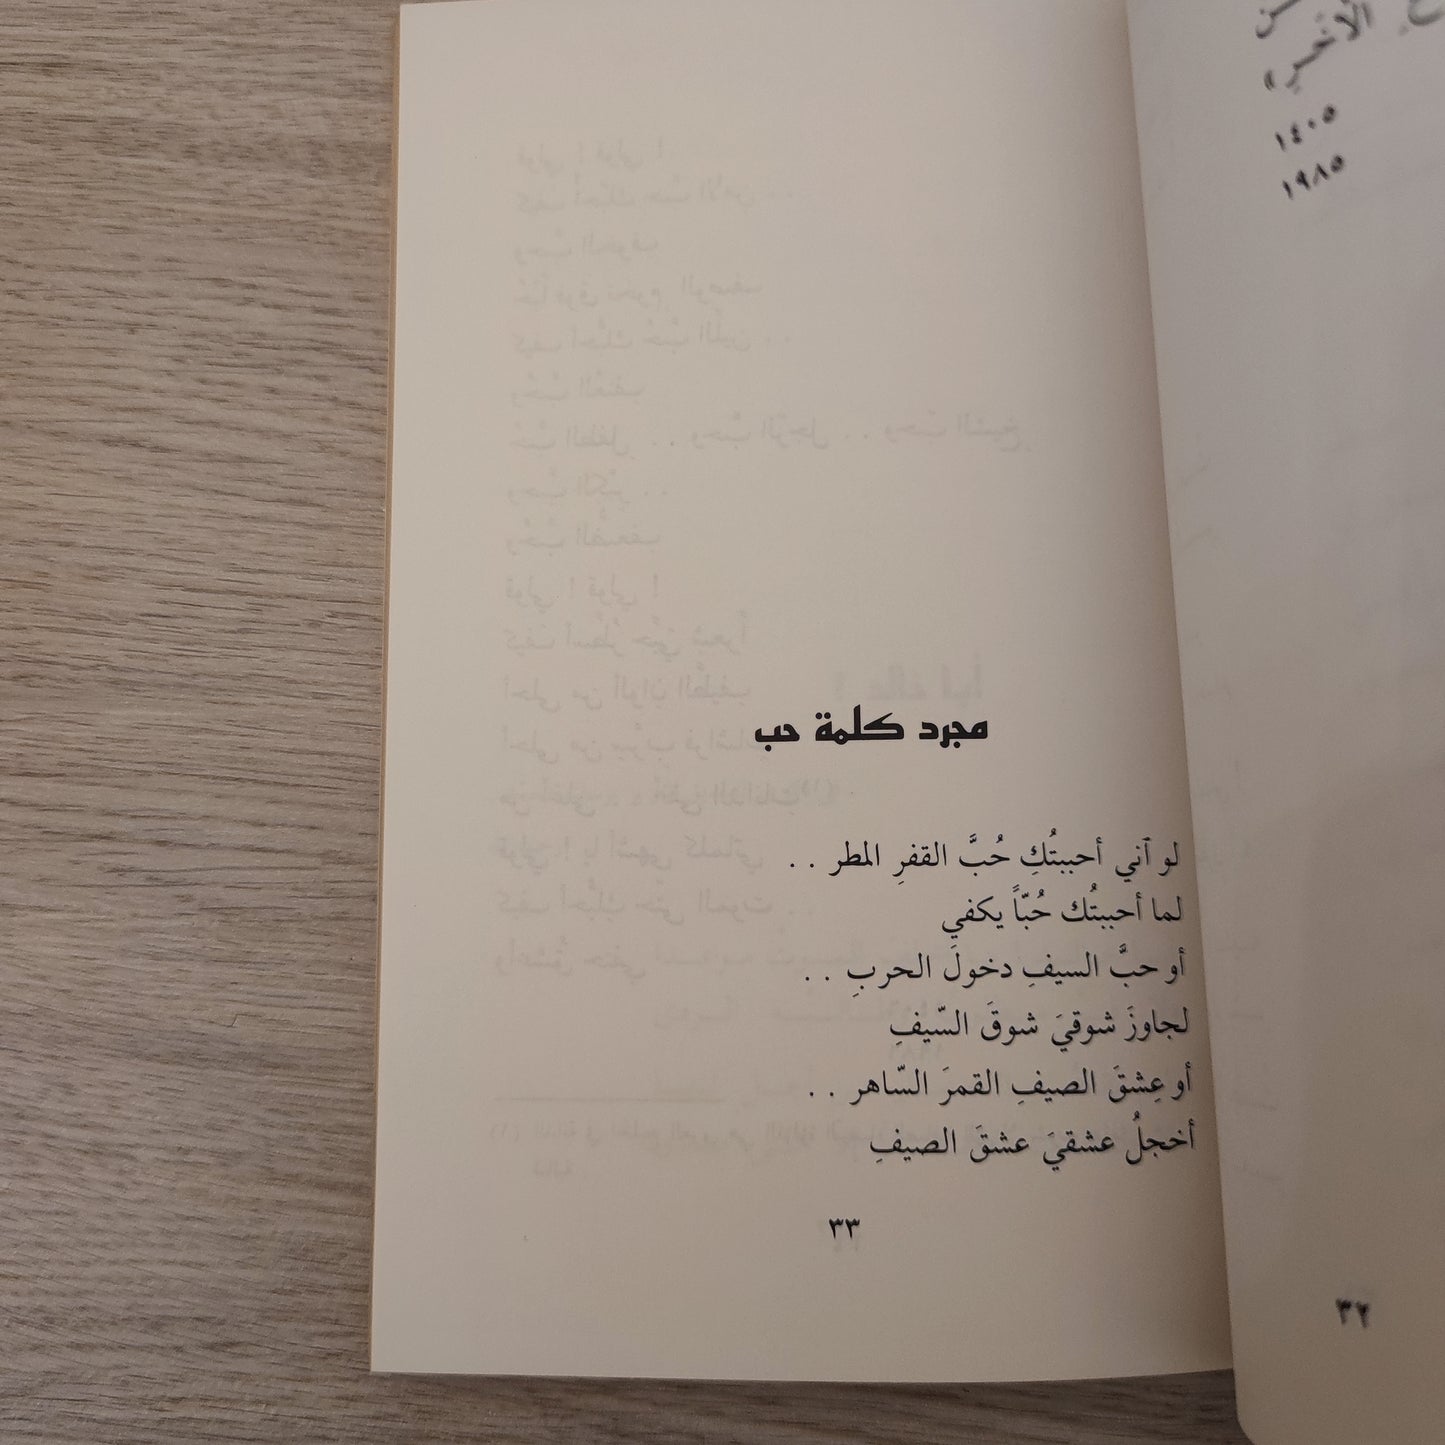 الآخرِ »
١٤٠٥
١٩٨٥
٣٢
مجرد كلمة حب
لو أني أحببتُكِ حُبَّ القفرِ المطر . .
لما أحببتُك حُبّاً يكفي
أو حبَّ السيفِ دخولَ الحربِ . .
لجاوزَ شوقيَ شوقَ السّيفِ
أو عِشقَ الصيفِ القمرَ السّاهر . .
أخجلُ عشقيَ عشقَ الصيفِ
٣٣